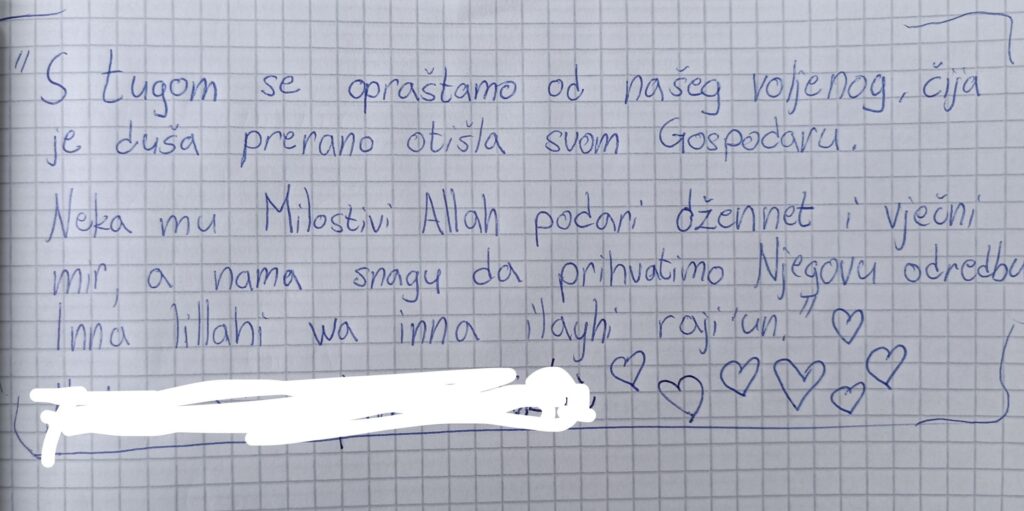 "S tugom se opraštamo od našeg voljenog, čija
je duša prerano otišla svom Gospodaru.
Neka mu Milostivi Allah podari džennet i vječni
mir, a nama snagu da prihvatimo Njegovu odredbu
Inna lillahi wa inna ilayhi raji'un."